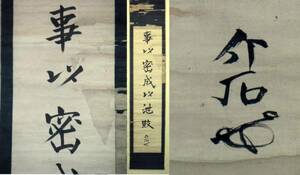 事以密
事以密成以泄敗
介石